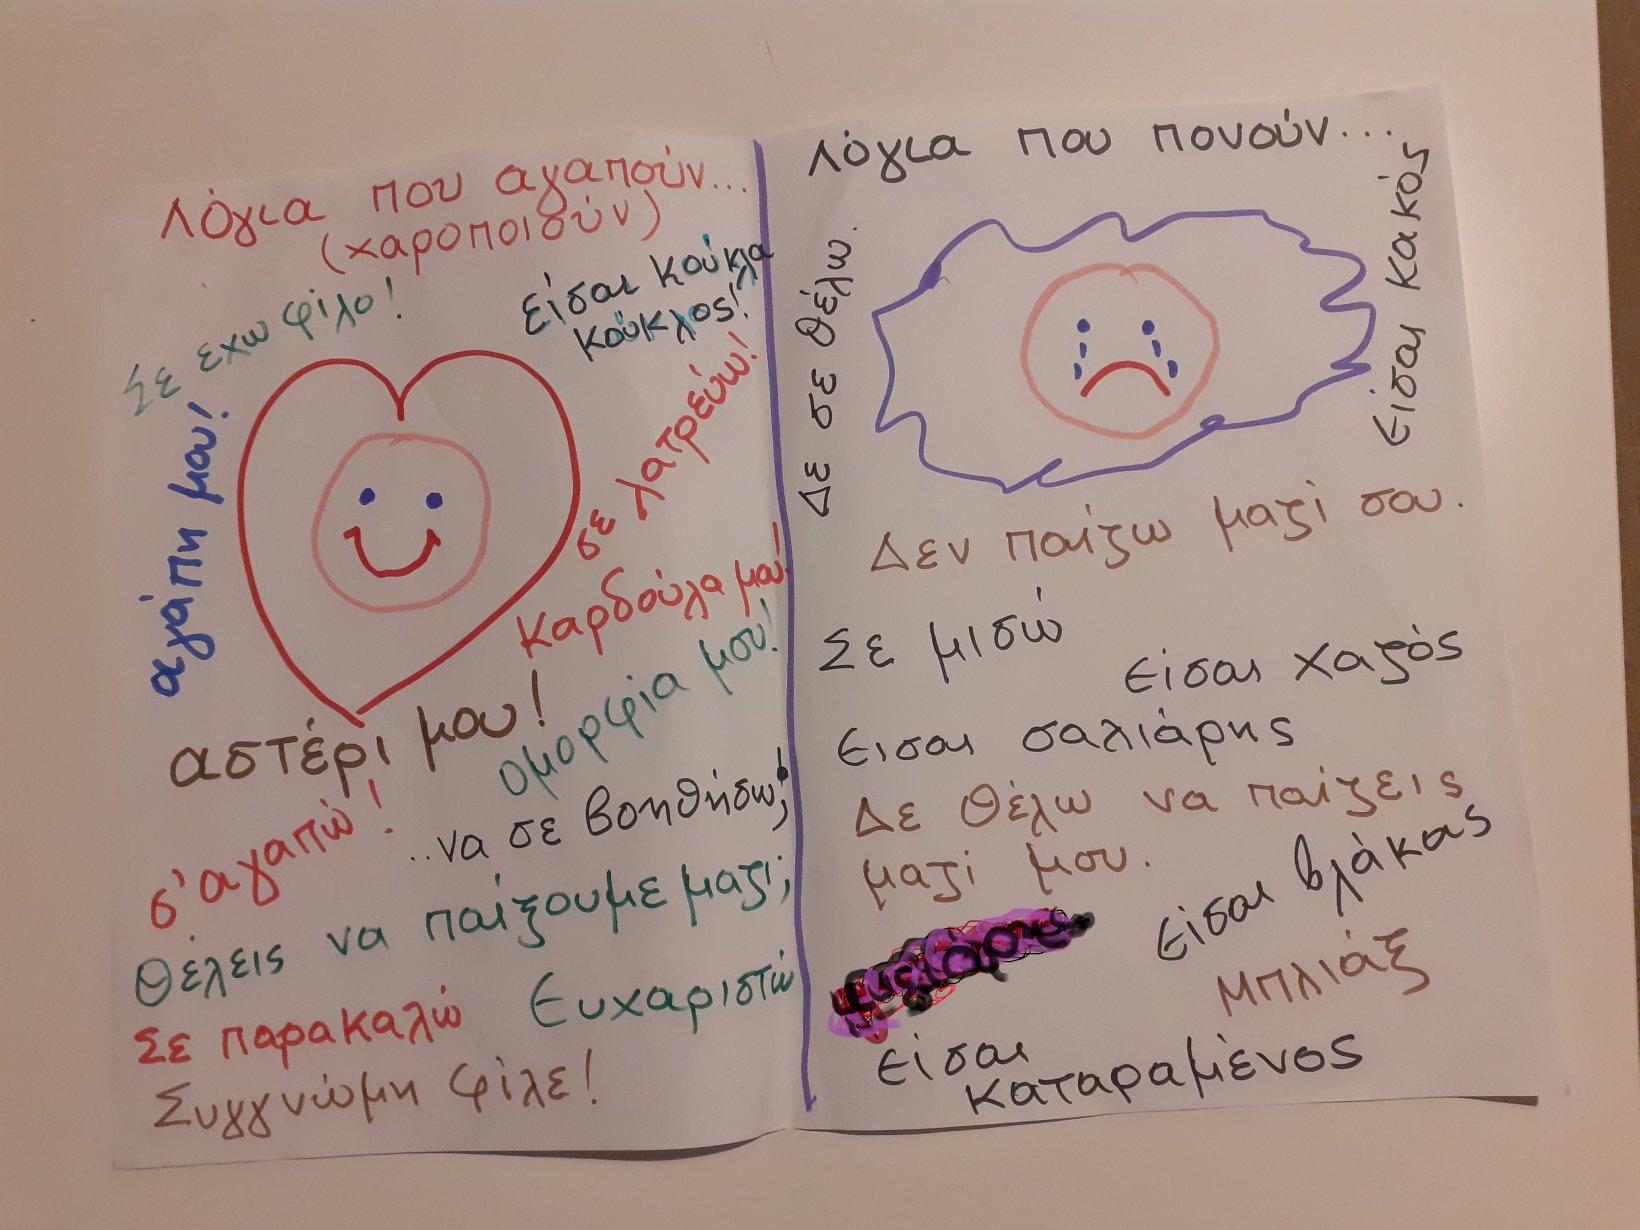 Λόγια που αγαπούν...
(χαροποιούν)
Σε εχω φίλο!
είσαι κούκλα
κούκλος!
αγάπη μου!
σε λατρεύω!
καρδούλα μου!
αστέρι μου!
ομορφιά μου!
σ'αγαπώ!
..να σε βοηθήσω;
Θέλεις να παίξουμε μαζί;
Σε παρακαλώ
Ευχαριστώ
Συγγνώμη φίλε!
Λόγια που πονούν...
Δε σε θέλω.
Είσαι κακός
Δεν παίζω μαζί σου.
Σε μισώ
Είσαι χαζός
Εισαι σαλιάρης
Δε θέλω να παίζεις
μαζί μου.
Είσαι βλάκας
Μπλιάξ
Είσαι
καταραμένος